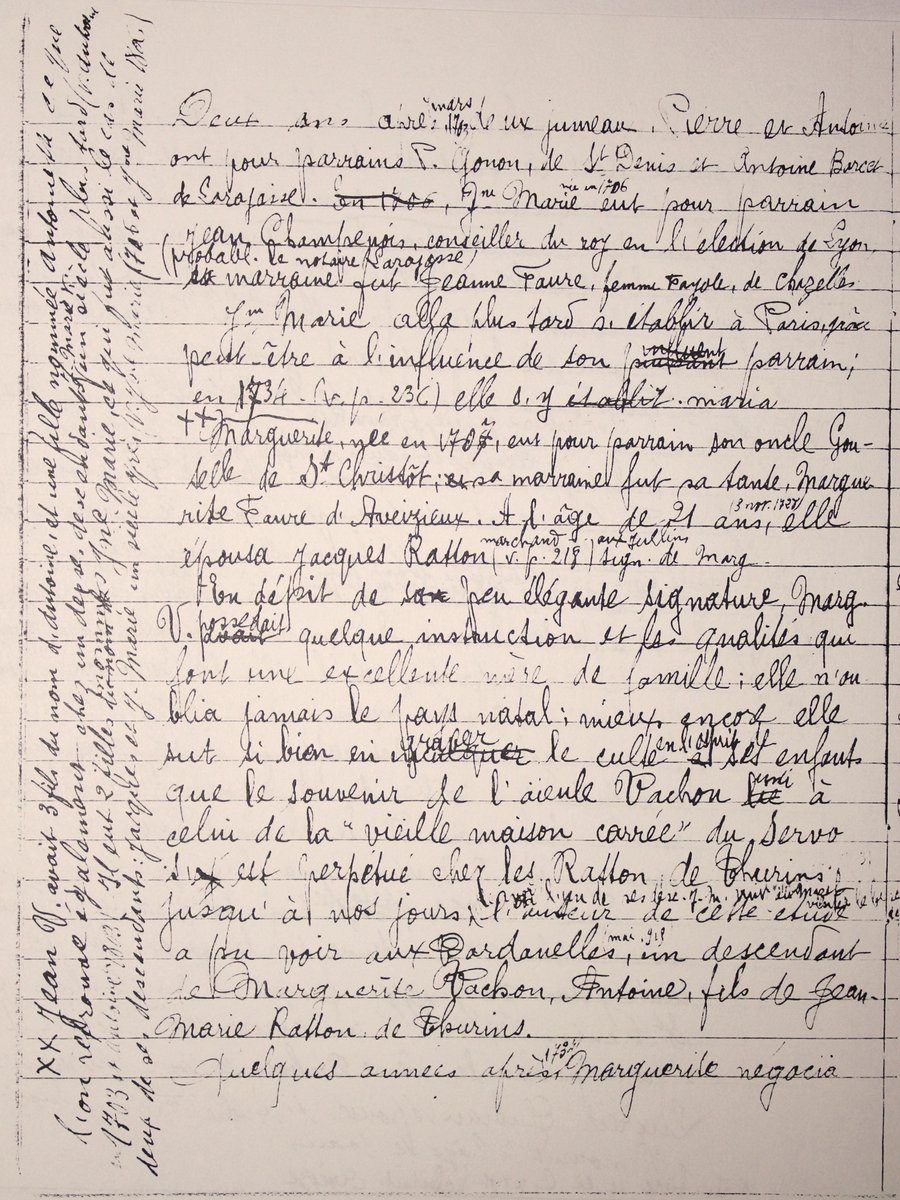 mars
Deux ans après, 1703, deux jumeaux, Pierre et Antoine
ont pour parrains P. Gonon, de St Denis et Antoine Barcet
née en 1706
de Larajasse. En 1706, Jne Marie eut pour parrain
Jean Champenois, conseiller du roy en l'élection de Lyon
(probabl. le notaire Larajasse)
sa marraine fut Jeanne Faure, femme Fayole, de Chazelles
Jne Marie alla plus tard s'établir à Paris, grâce
peut-être à l'influence de son influent parrain;
en 1734 - (v. p. 236) elle s'y établit maria
++
Marguerite, née en 1707, eut pour parrain son oncle Gou-
selle de St Christôt; sa marraine fut sa tante, Margue
rite Faure d'Aveizieux. A l'âge de 21 ans, elle
(3 nov. 1728)
épousa Jacques Ratton (v. p. 218) sign. de Marg
marchand aux Jullins
+ En dépit de sa peu élégante signature, Marg.
V. possédait quelque instruction et les qualités qui
font une excellente mère de famille; elle n'ou
blia jamais le pays natal; mieux encore elle
graver en l'esprit
sut si bien en inculquer le culte à ses enfants
que le souvenir de l'aïeule Vachon uni à
celui de la "vieille maison carrée" du Servo
s'y est perpétué chez les Ratton de Thurins
jusqu'à nos jours, l'auteur de cette étude
mai 1918
a pu voir aux Dardanelles, un descendant
de Marguerite Vachon, Antoine, fils de Jean-
Marie Ratton de Thurins.
Quelques années après, Marguerite négocia
xx Jean V. avait 3 fils du nom d'Antoine, et une fille nommée Antoinette ce que
l'on retrouve également chez un de ses descendants un siècle plus tard
Il eut 2 filles nommées Jne Marie, ce qui fut aussi le cas de
deux de ses descendants: Jacques et J. Marie un siècle après